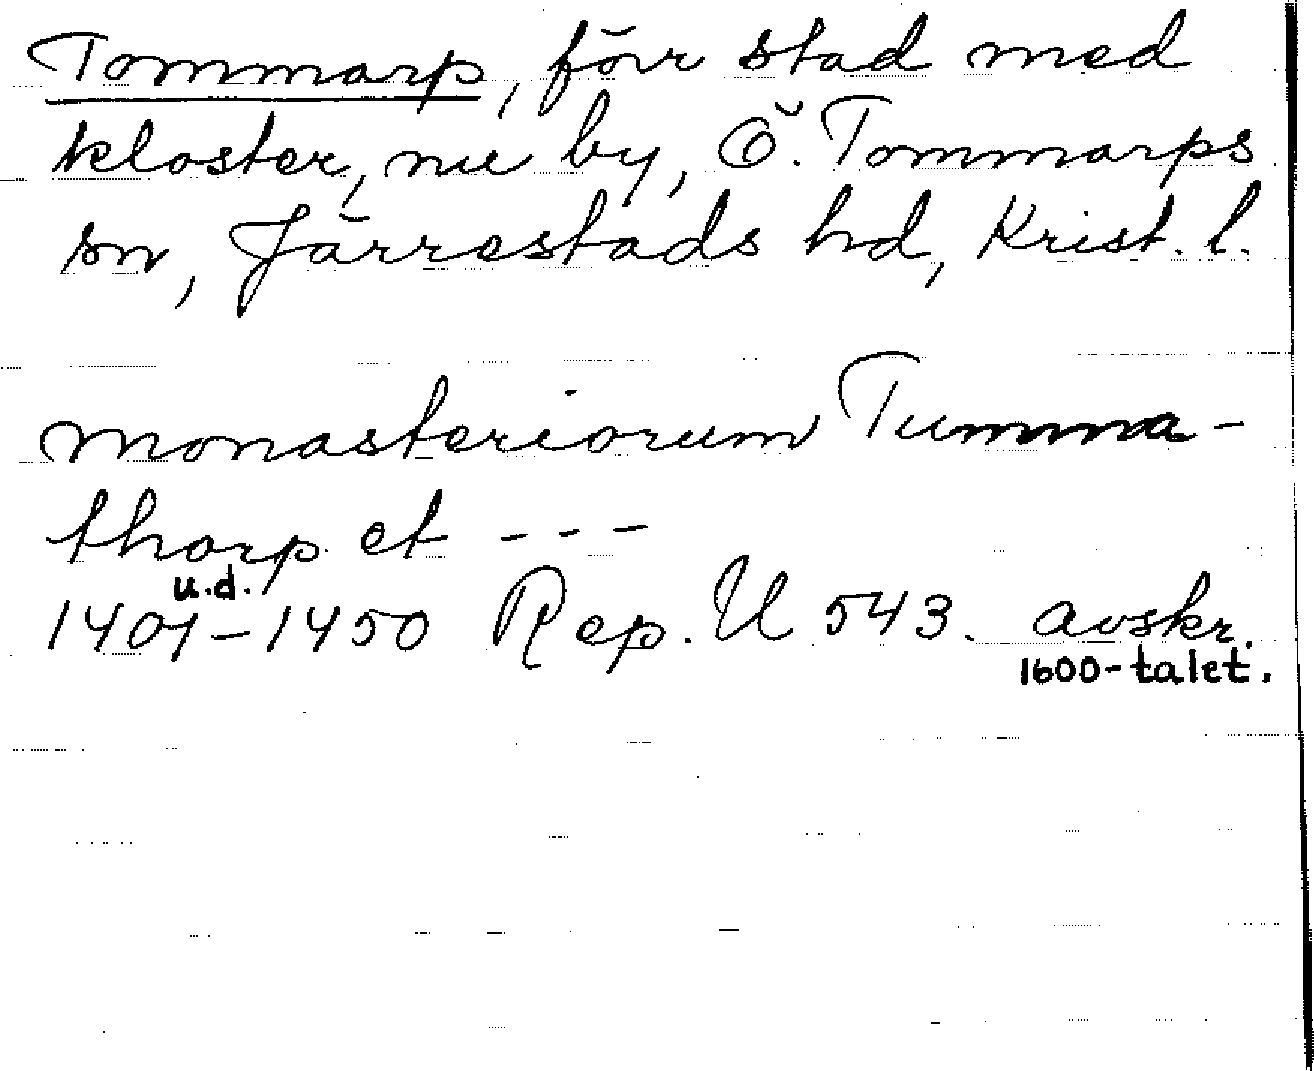 Tommarp, förr stad med
kloster, nu by, Ö. Tommarps
sn, Järrestads hd, Krist. l.
monasteriorum Tumma-
thorp et ---
u.d.
1401-1450 Rep. U 543. avskr.
1600-talet.